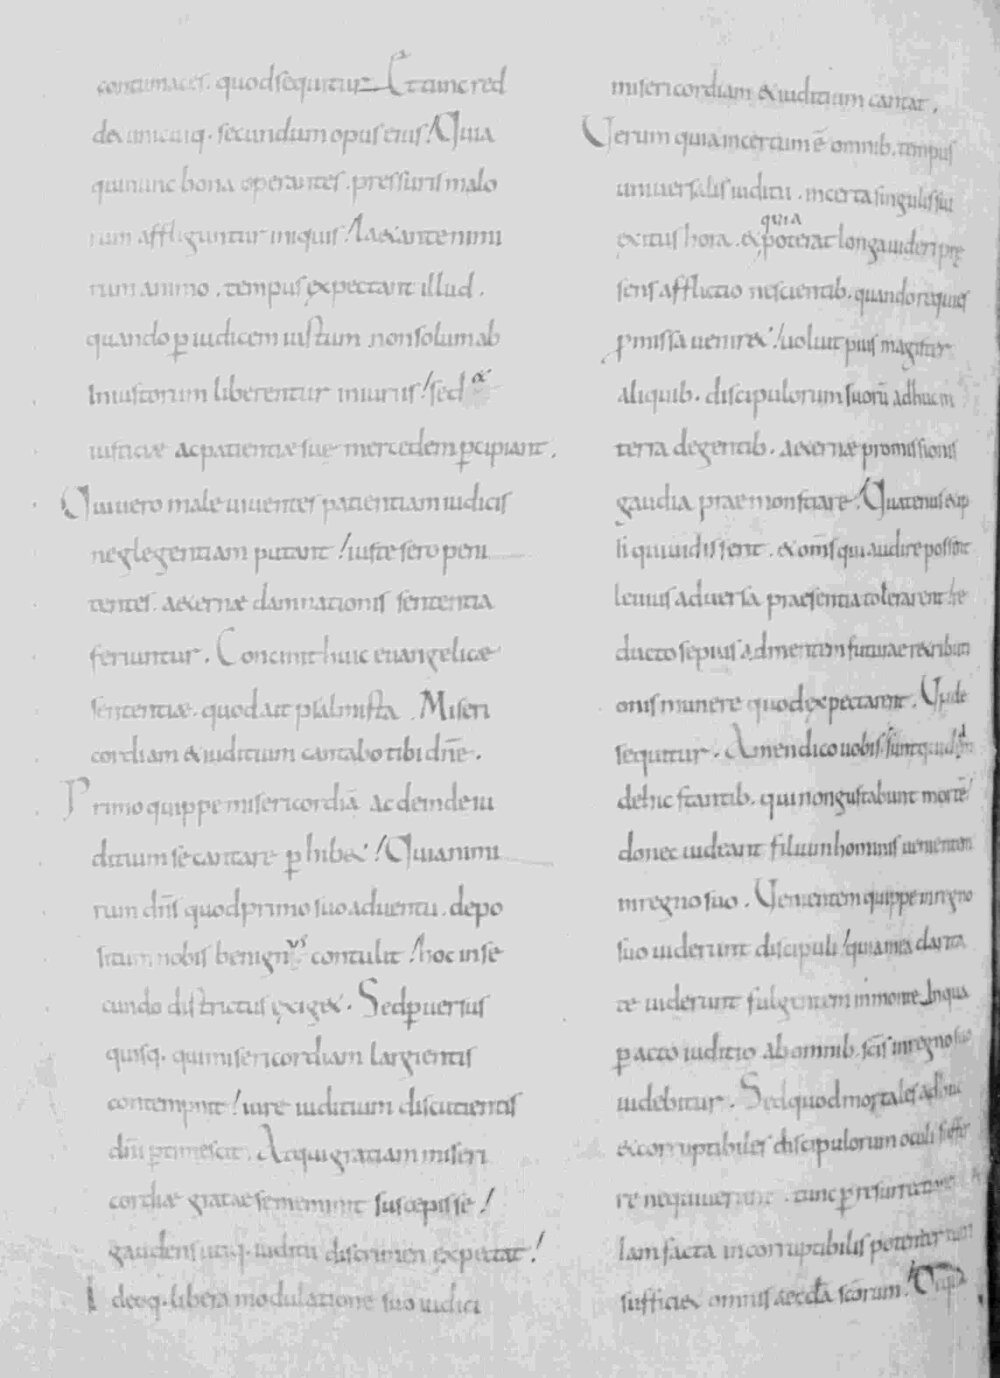 contumaces. quod sequitur Et tunc red
det unicuiq. secundum opus eius! Quia
qui nunc bona operantes. pressuris malo
rum affliguntur iniquis! laetante nimi
rum animo. tempus expectant illud.
quando p iudicem iustum non solum ab
iniustorum liberentur iniuriis! sed et
iustitiæ ac patientiæ suę mercedem pcipiant.
Qui uero male uiuentes patientiam iudicis
neglegentiam putant! iuste sero peni
tentes. aeternæ damnationis sententia
feriuntur. Concinit huic euangelicæ
sententiæ. quod ait psalmista. Miseri
cordiam & iuditium cantabo tibi dñe.
Primo quippe misericordiã ac deinde iu
ditium se cantare phibet! Quia nimi
rum dñs quod primo suo aduentu. depo
situm nobis benignus contulit! hoc in se
cundo districtus exiget. Sed puersus
quisq. qui misericordiam largientis
contempnit! iure iuditium discutientis
dñi ptimescit. At qui gratiam miseri
cordiæ gratae se meminit suscepisse!
gaudens utiq. iuditii discrimen expectat!
Ideoq. libera modulatione suo iudici
misericordiam & iuditium cantat.
Uerum quia incertum ẽ omnib. tempus
uniuersalis iuditii. incerta singulis sui
exitus hora. et quia poterat longa uideri prę
sens afflictio nescientib. quando requies
pmissa ueniret! uoluit pius magister
aliquib. discipulorum suorũ adhuc in
terra degentib. aeternæ promissionis
gaudia praemonstrare! Quatenus et ip
li qui uidissent. et om̃s qui audire possent
leuius aduersa praesentia tolerarent re
ducto sepius ad mentem futurae retributi
onis munere quod expectarent. Unde
sequitur. Amen dico uobis. sunt quidã
de hic stantib. qui non gustabunt mortẽ!
donec uideant filium hominis uenientem
in regno suo. Uenientem quippe in regno
suo uiderunt discipuli! quia in ea clarita
te uiderunt fulgentem in monte. In qua
pacto iuditio ab omnib. scĩs in regno suo
uidebitur. Sed quod mortales adhuc
et corruptibiles discipulorum oculi suffer
re nequiuerunt. tunc p resurrectionem
iam facta incorruptibilis potenter
sufficiet omnis aeccła scõrum!